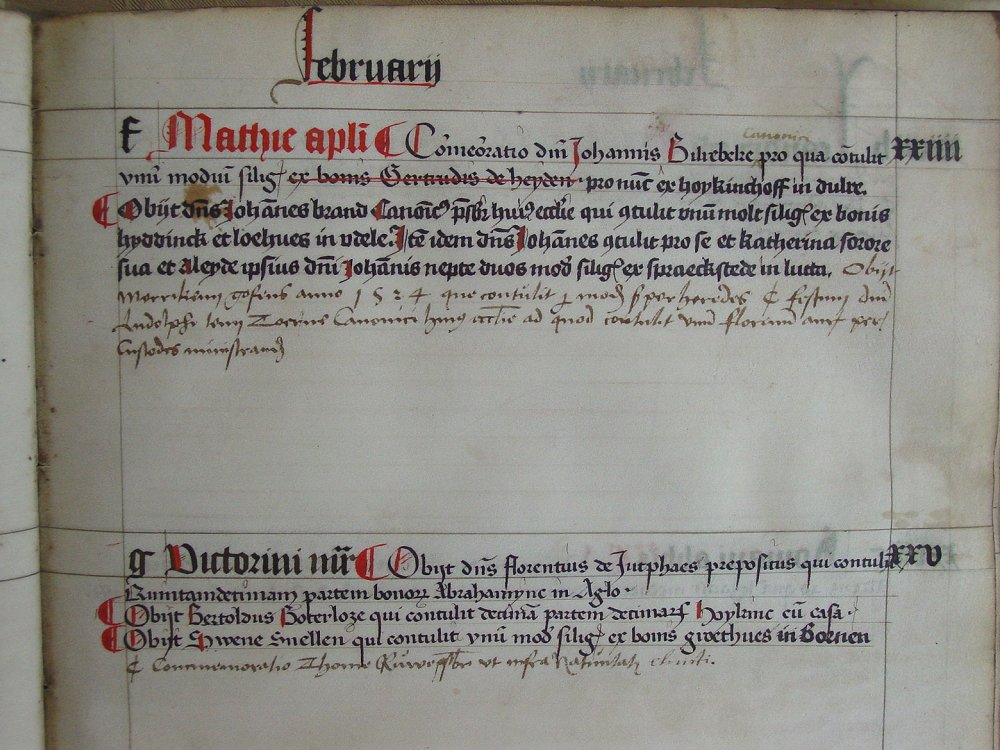 februarij
f Mathie apli Comeoratio dni Johannis Bilrebeke canonici pro qua cotulit xxiiii
vnu modiu silig ex bonis Gertrudis de heyden pro nuc ex hoykinchoff in dulre.
Obijt dns Johanes brand Canonic pr̄sbr hui ecclie qui qtulit vnu molt silig ex bonis
hyddinck et loehues in vdele. Ite idem dns Johanes qtulit pro se et katherina sorore
sua et Aleyde ipsius dni Johanis nepte duos mod silig ex spraeckstede in lutta. Obijt
anno 1524 que contulit per heredes festum dni
Ludolphi Canonici ad quod contulit vnu florenu per
Custodes ministrand
g Victorini mr Obijt dns florentius de Jutphaes prepositus qui contulit xxv
Quintamdecimam partem bonor Abrahamync in Aglo.
Obijt Bertoldus Boterloze qui contulit decima partem decimar Hoylinc cu casa.
Obijt Swene Snellen qui contulit vnu mod silig ex bonis giethues in Bornen
Commemoratio Thome vt infra Natiuitat christi.